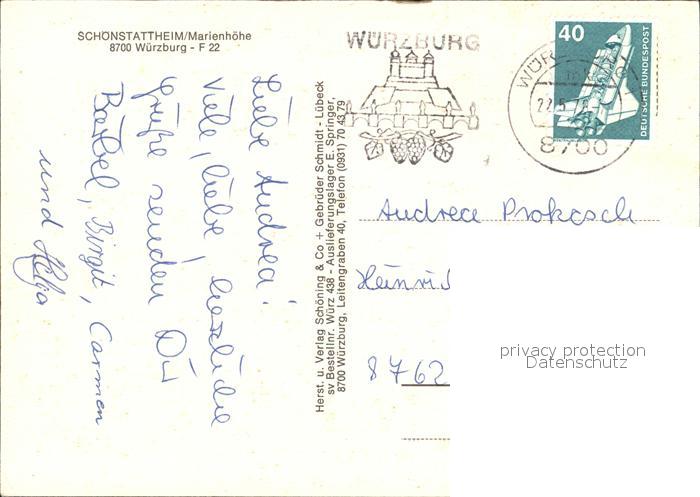 SCHÖNSTATTHEIM/Marienhöhe
8700 Würzburg - F 22
Liebe Andrea!
Viele, liebe, herzliche
Grüße senden Dir
Bärbel, Birgit, Carmen
und Helga
Herst. u. Verlag Schöning & Co + Gebrüder Schmidt - Lübeck
sv Bestellnr. Würz 438 - Auslieferungslager E. Springer,
8700 Würzburg, Leitengraben 40, Telefon (0931) 70 43 79
WÜRZBURG
40
DEUTSCHE BUNDESPOST
WÜR
8700
Andrea Prokosch
Heinri
8762
privacy protection
Datenschutz